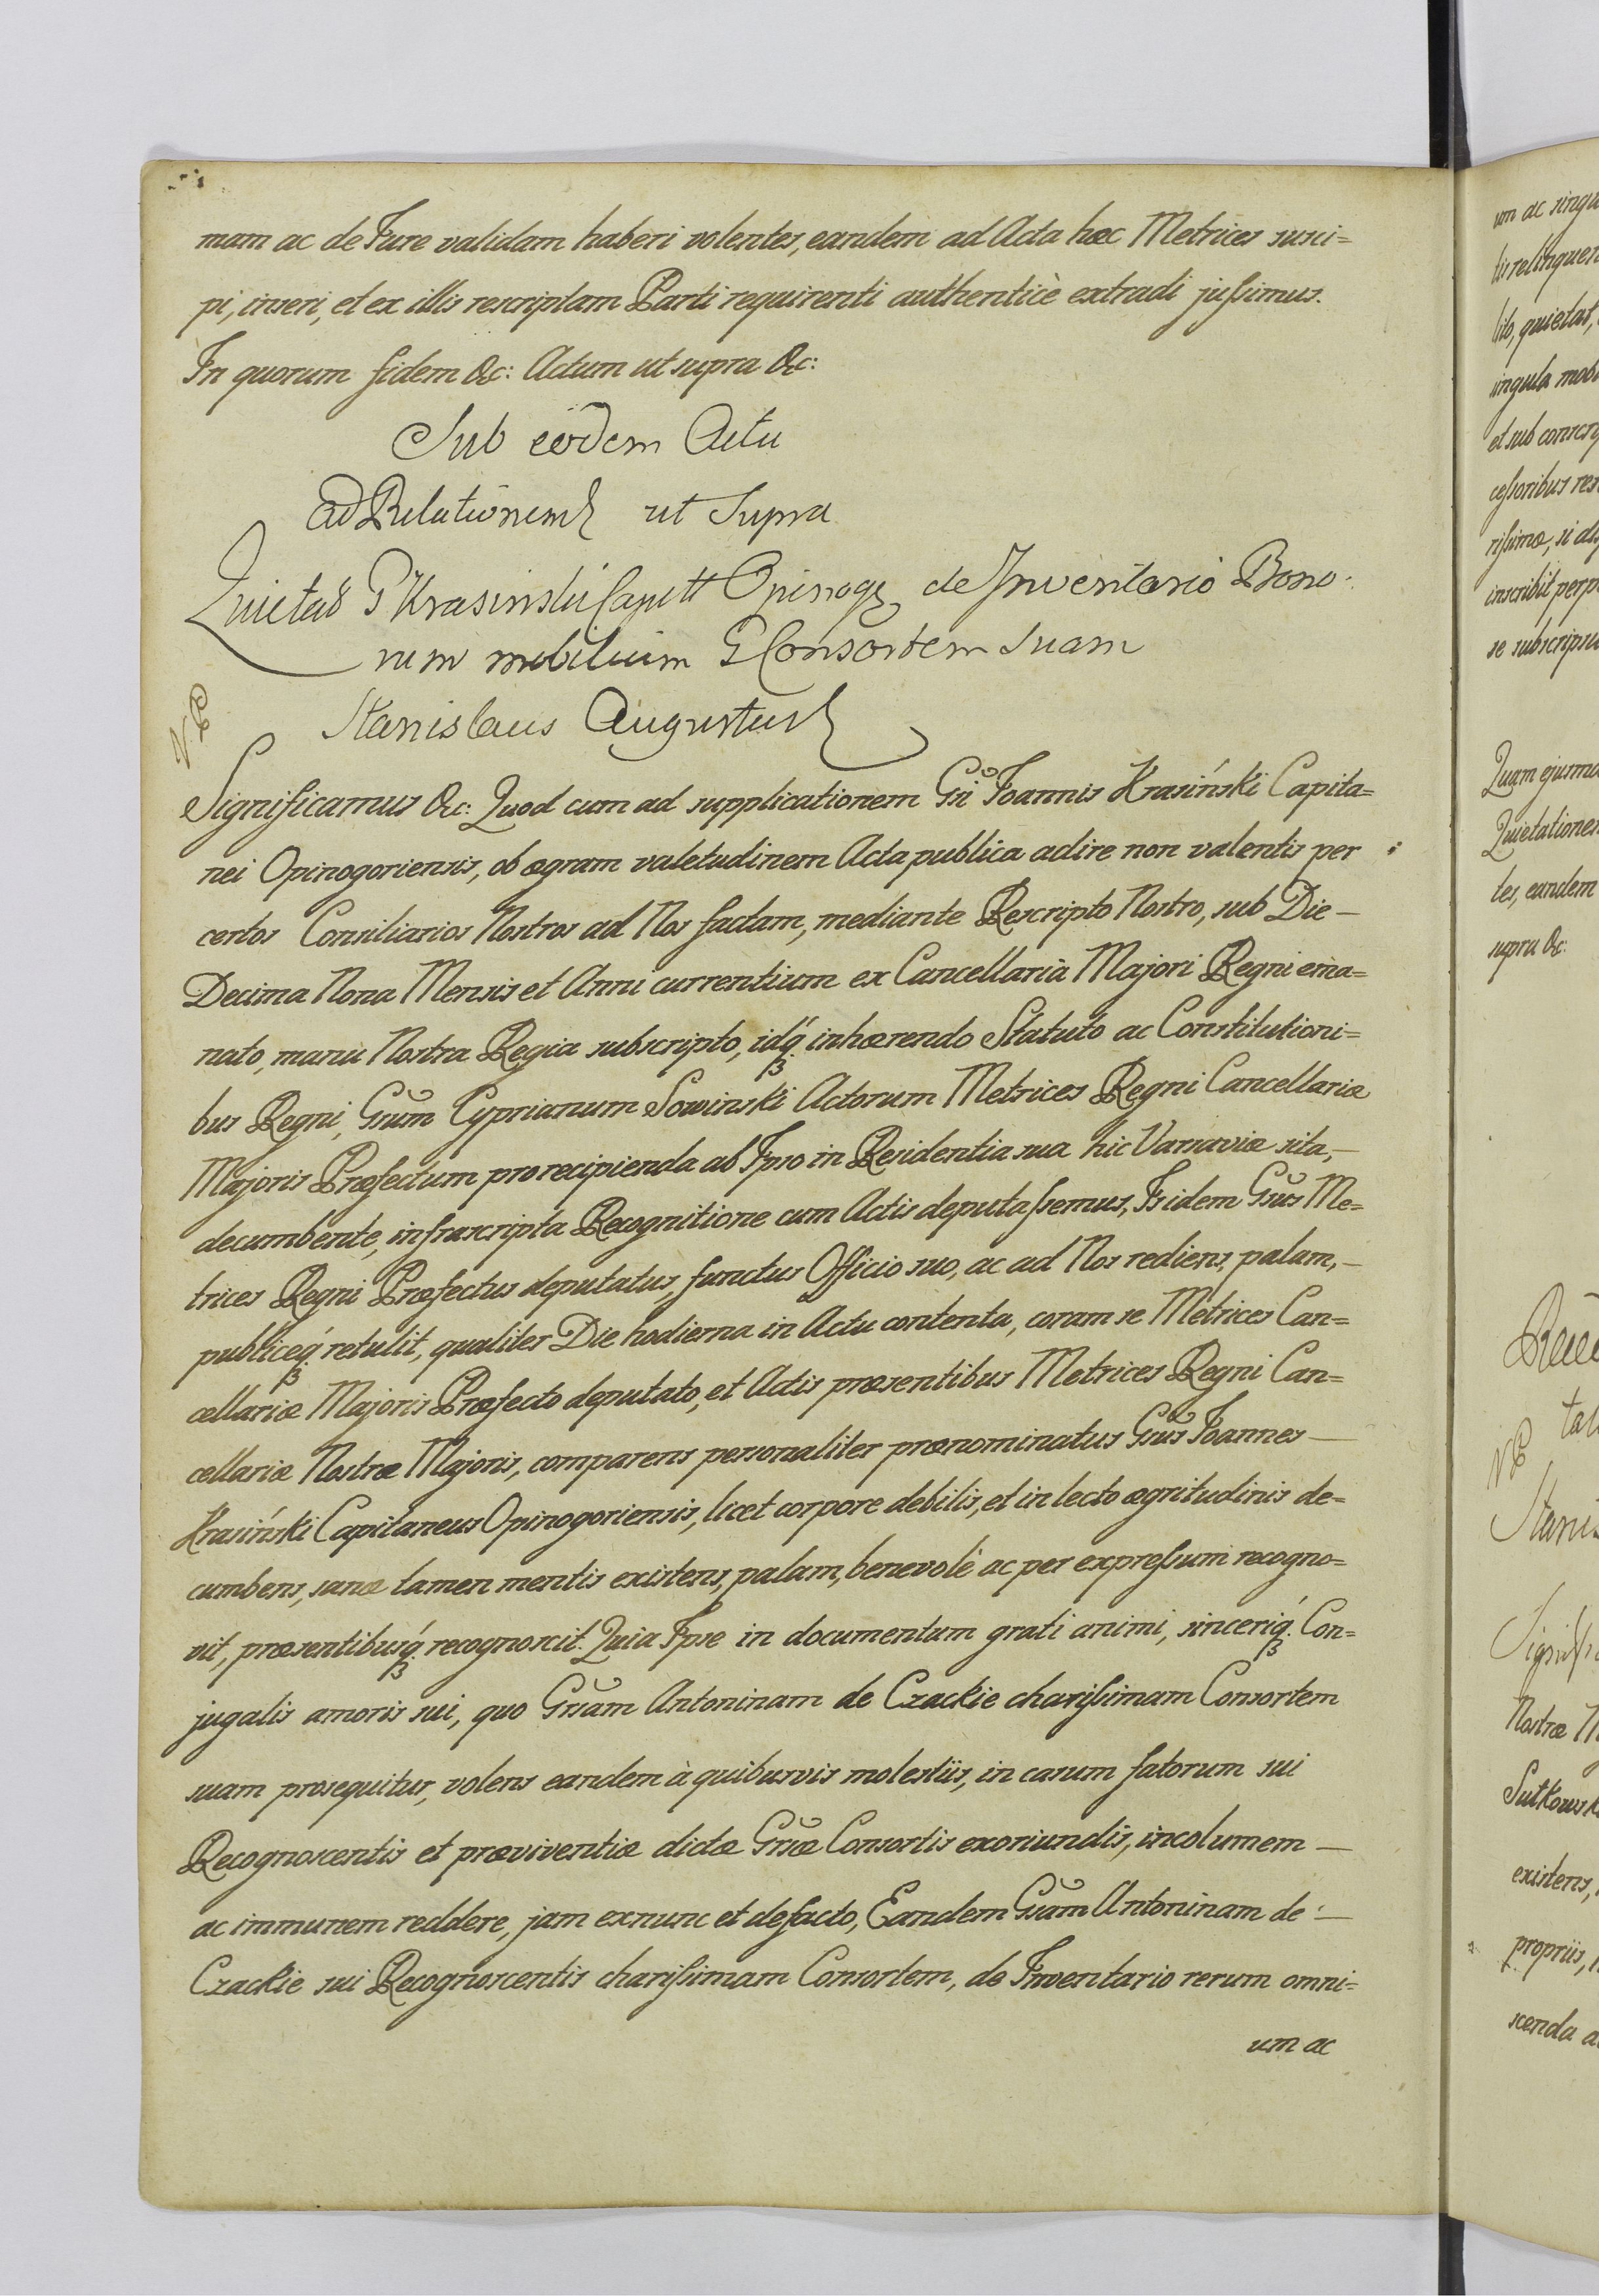 mam ac de Jure validam haberi volentes, eandem ad Acta hæc Metrices susci=
pi, inseri, et ex illis rescriptam Parti requirenti authenticè extradi jussimus.
In quorum fidem &c: Actum ut supra &c:
Sub eodem Actu
Ad Relationem ut Supra
Quietat G Krasinski Capitt Opinog de Inventario Bono:
rum mobilium G Consortem Suam
Stanislaus Augustus
Significamus &c: Quod cum ad supplicationem Gsi Joannis Krasiński Capita=
nei Opinogoriensis, ob ægram valetudinem Acta publica adire non valentis per
certos Consiliarios Nostros ad Nos factam, mediante Rescripto Nostro, sub Die —
Decima Nona Mensis et Anni currentium ex Cancellaria Majori Regni ema=
nato, manu Nostra Regia subscripto, idq́ inhærendo Statuto ac Constitutioni=
bus Regni, Gsum Cyprianum Sowinski Actorum Metrices Regni Cancellariæ
Majoris Præfectum pro recipienda ab Ipso in Residentia sua hic Varsaviæ sita, —
decumbente, infrascripta Recognitione cum Actis deputassemus, Is idem Gsus Me=
trices Regni Præfectus deputatus, functus Officio suo, ac ad Nos rediens, palam, —
publiceq́ retulit, qualiter Die hodierna in Actu contenta, coram se Metrices Can=
cellariæ Majoris Præfecto deputato, et Actis præsentibus Metrices Regni Can=
cellariæ Nostræ Majoris, comparens personaliter prænominatus Gsus Joannes —
Krasiński Capitaneus Opinogoriensis, licet corpore debilis, et in lecto ægritudinis de=
cumbens, sanæ tamen mentis existens, palam, benevolè ac per expressum recogno=
vit, præsentibusq́ recognoscit. Quia Ipse in documentum grati animi, sinceriq́ Con=
jugalis amoris sui, quo Gsam Antoninam de Czackie charissimam Consortem
suam prosequitur, volens eandem à quibusvis molestiis, in casum fatorum sui
Recognoscentis et præviventiæ dictæ Gsæ Consortis exoriundis, incolumem —
ac immunem reddere, jam exnunc et defacto, Eandem Gsam Antoninam de —
Czackie sui Recognoscentis charissimam Consortem, de Inventario rerum omni=
um ac
um ac singu
tis relinquen
lito, quietat,
ingula mobi
et sub conscri
cessoribus res
rissimæ, si
inscribit perp
se subscripsit
Quam ejusmo
Quietationem
tes, eandem
supra &c:
Stanis
Signifi
Nostræ
Sutkowsk
existens,
propriis,
scenda